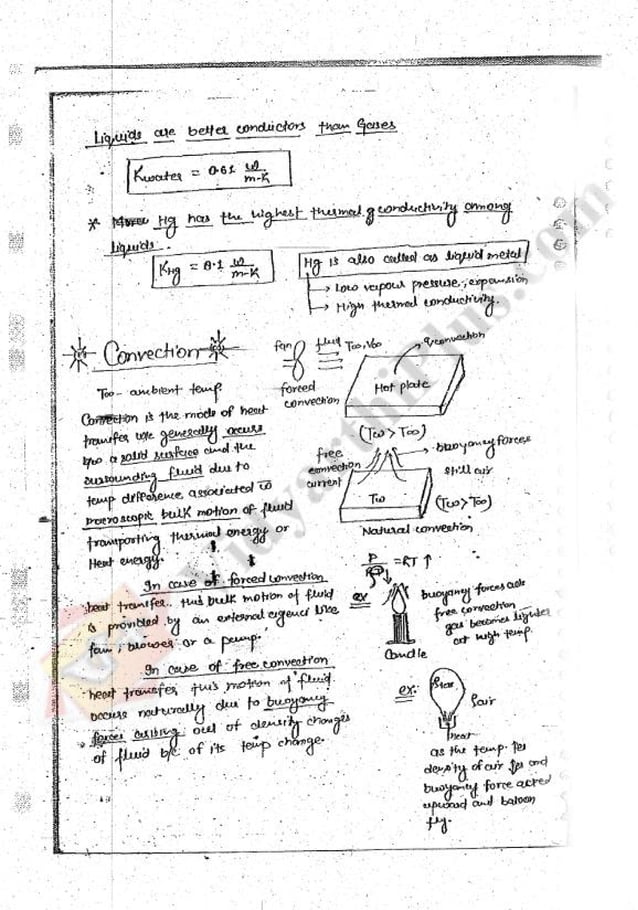 Liquids are better conductors than Gases
Kwater = 0.61 W/m-K
* Hg has the highest thermal conductivity among
liquids.
KHg = 8.1 W/m-K
Hg is also called as liquid metal
→ Low vapour pressure, expansion
→ High thermal conductivity.
Convection
T∞ - ambient temp.
Convection is the mode of heat
transfer generally occurs
b/w a solid surface and the
surrounding fluid due to
temp difference associated to
macroscopic bulk motion of fluid
transporting thermal energy or
Heat energy.
In case of forced convection
heat transfer this bulk motion of fluid
is provided by an external agency like
fan, blower or a pump.
In case of free convection
heat transfer, this motion of fluid
occurs naturally due to buoyancy
forces out of density changes
of fluid b/c of its temp change.
fan
fluid
T∞, V∞
q convection
forced
convection
Hot plate
(Tω > T∞)
free
convection
current
buoyancy forces
still air
Tω
(Tω > T∞)
Natural convection
= RT ↑
ex
Candle
buoyancy forces
free convection
gas becomes lighter
at high temp.
ex:
ρair
heat
as the temp. ↑es
density of air ↓es and
buoyancy force acted
upward and baloon
fly.
VidyarthiPlus.com